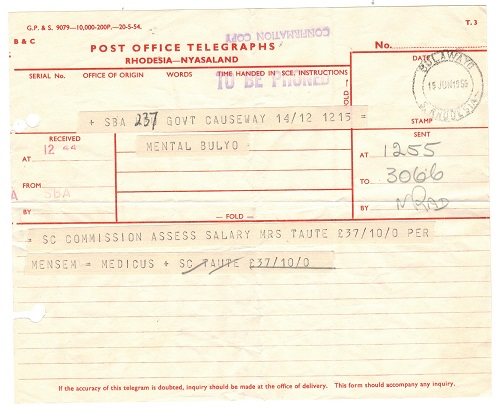 G.P. & S. 9079—10,000-200P.—20-5-54.
T. 3
B & C
CONFIRMATION COPY
POST OFFICE TELEGRAPHS
RHODESIA—NYASALAND
No.
SERIAL No. OFFICE OF ORIGIN WORDS TIME HANDED IN SCE. INSTRUCTIONS
TO BE PHONED
DATE
BULAWAYO
15 JUN 1955
S. RHODESIA
STAMP
FOLD
+ SBA 237 GOVT CAUSEWAY 14/12 1215 =
MENTAL BULYO
RECEIVED
AT 12 44
FROM SBA
BY
SENT
AT 1255
TO 3066
BY
— FOLD —
= SC COMMISSION ASSESS SALARY MRS TAUTE £37/10/0 PER
MENSEM = MEDICUS + SC TAUTE £37/10/0
If the accuracy of this telegram is doubted, inquiry should be made at the office of delivery. This form should accompany any inquiry.